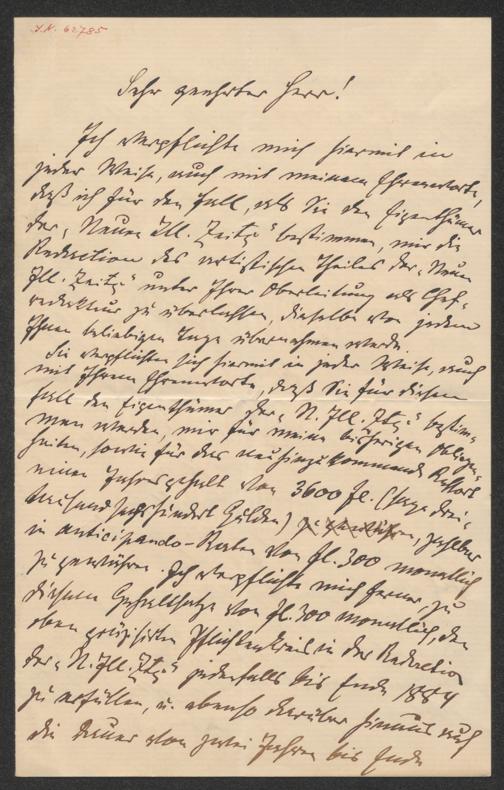 I.N. 62785
Sehr geehrter Herr!
Ich verpflichte mich hiermit in
jeder Weise, auch mit meinem Ehrenworte,
daß ich für den Fall, als Sie den Eigenthümer
der „Neuen Ill. Zeitg“ bestimmen, mir die
Redaction des artistischen Theiles der „Neuen
Ill. Zeitg“ unter Ihrer Oberleitung als Chef-
redakteur zu überlassen, dieselbe von jedem
Ihnen beliebigen Tage übernehmen werde.
Sie verpflichten sich hiermit in jeder Weise, auch
mit Ihrem Ehrenworte, daß Sie für diesen
Fall den Eigenthümer der „N. Ill. Ztg“ bestim-
men werden, mir für meine bisherigen Obliegen-
heiten, sowie für das neu hinzukommende Ressort
einen Jahresgehalt von 3600 fl. (sage drei-
tausend sechshundert Gulden) zahlbar
in anticipando-Raten von fl. 300 monatlich
zu gewähren. Ich verpflichte mich ferner, zu
diesem Gehaltsatze von fl. 300 monatlich, den
oben präzisirten Pflichtenkreis in der Redaction
der „N. Ill. Ztg“ jedenfalls bis Ende 1884
zu erfüllen, u. ebenso darüber hinaus auf
die Dauer von zwei Jahren bis Ende